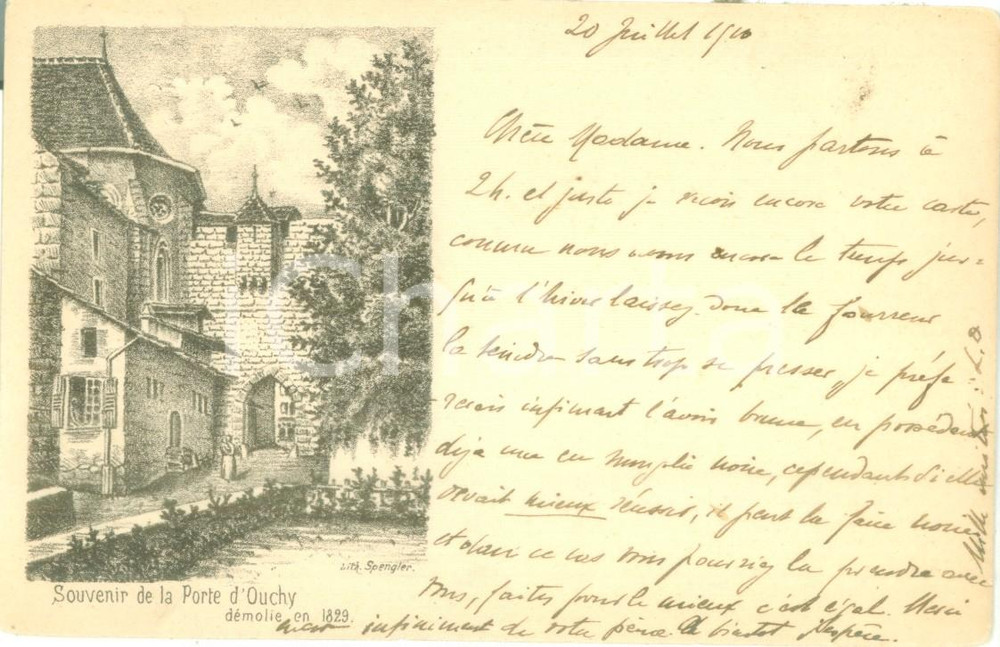 20 Juillet 1910
Chère Madame. Nous partons à
2h. et juste je reçois encore votre carte,
comme nous avons encore le temps jus=
qu'à l'hiver laissez donc le fourreur
la teindre sans trop se presser, je préfè
rerais infiniment l'avoir brune, en possédant
déjà une en noire, cependant si elle
devait mieux réussir, il peut la faire noire
et dans ce cas vous pourriez la prendre avec
vous, faites pour le mieux c'est égal. Merci
infiniment de votre peine & bientôt j'espère.
Mille amitiés: L.O
Lith. Spengler.
Souvenir de la Porte d'Ouchy
démolie en 1829.
iCharta